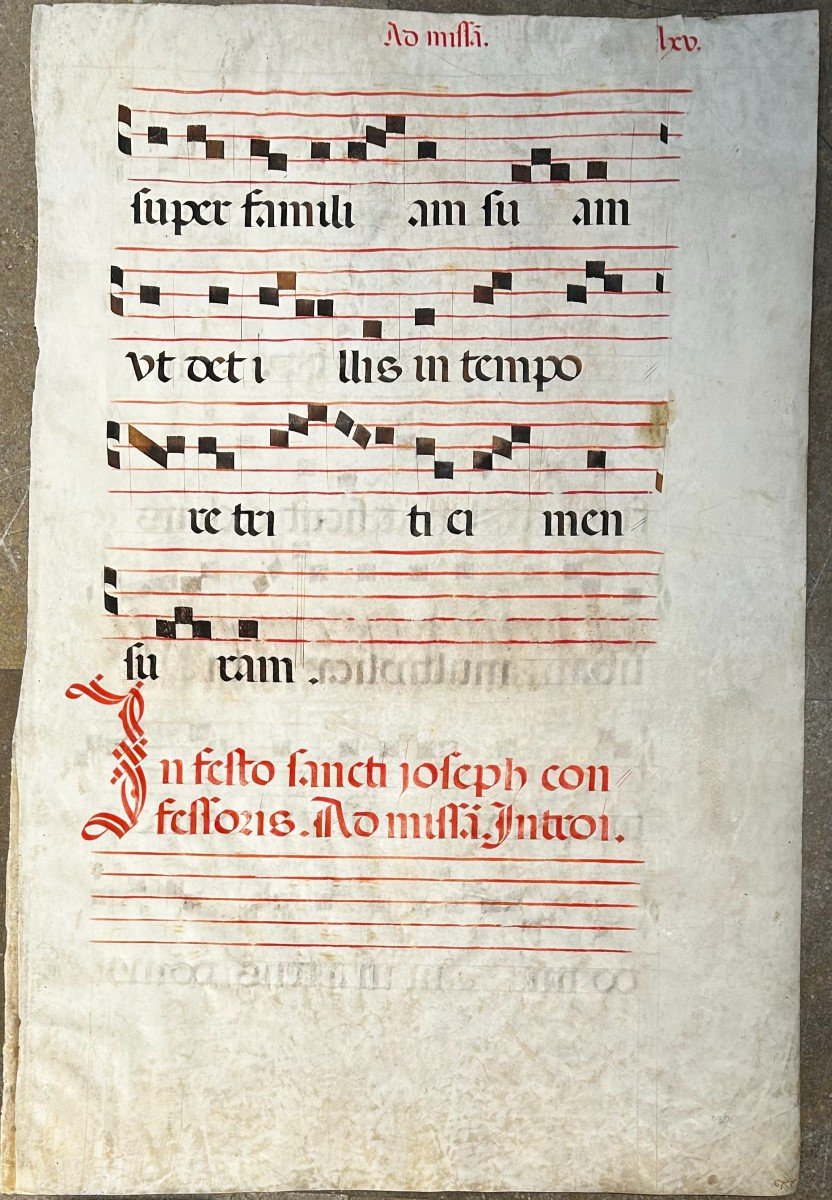 Ad missã. lxv.
super famili am su am
vt det i llis in tempo
re tri ti ci men
su ram .
In festo sancti joseph con
fessoris. Ad missã. Introi.